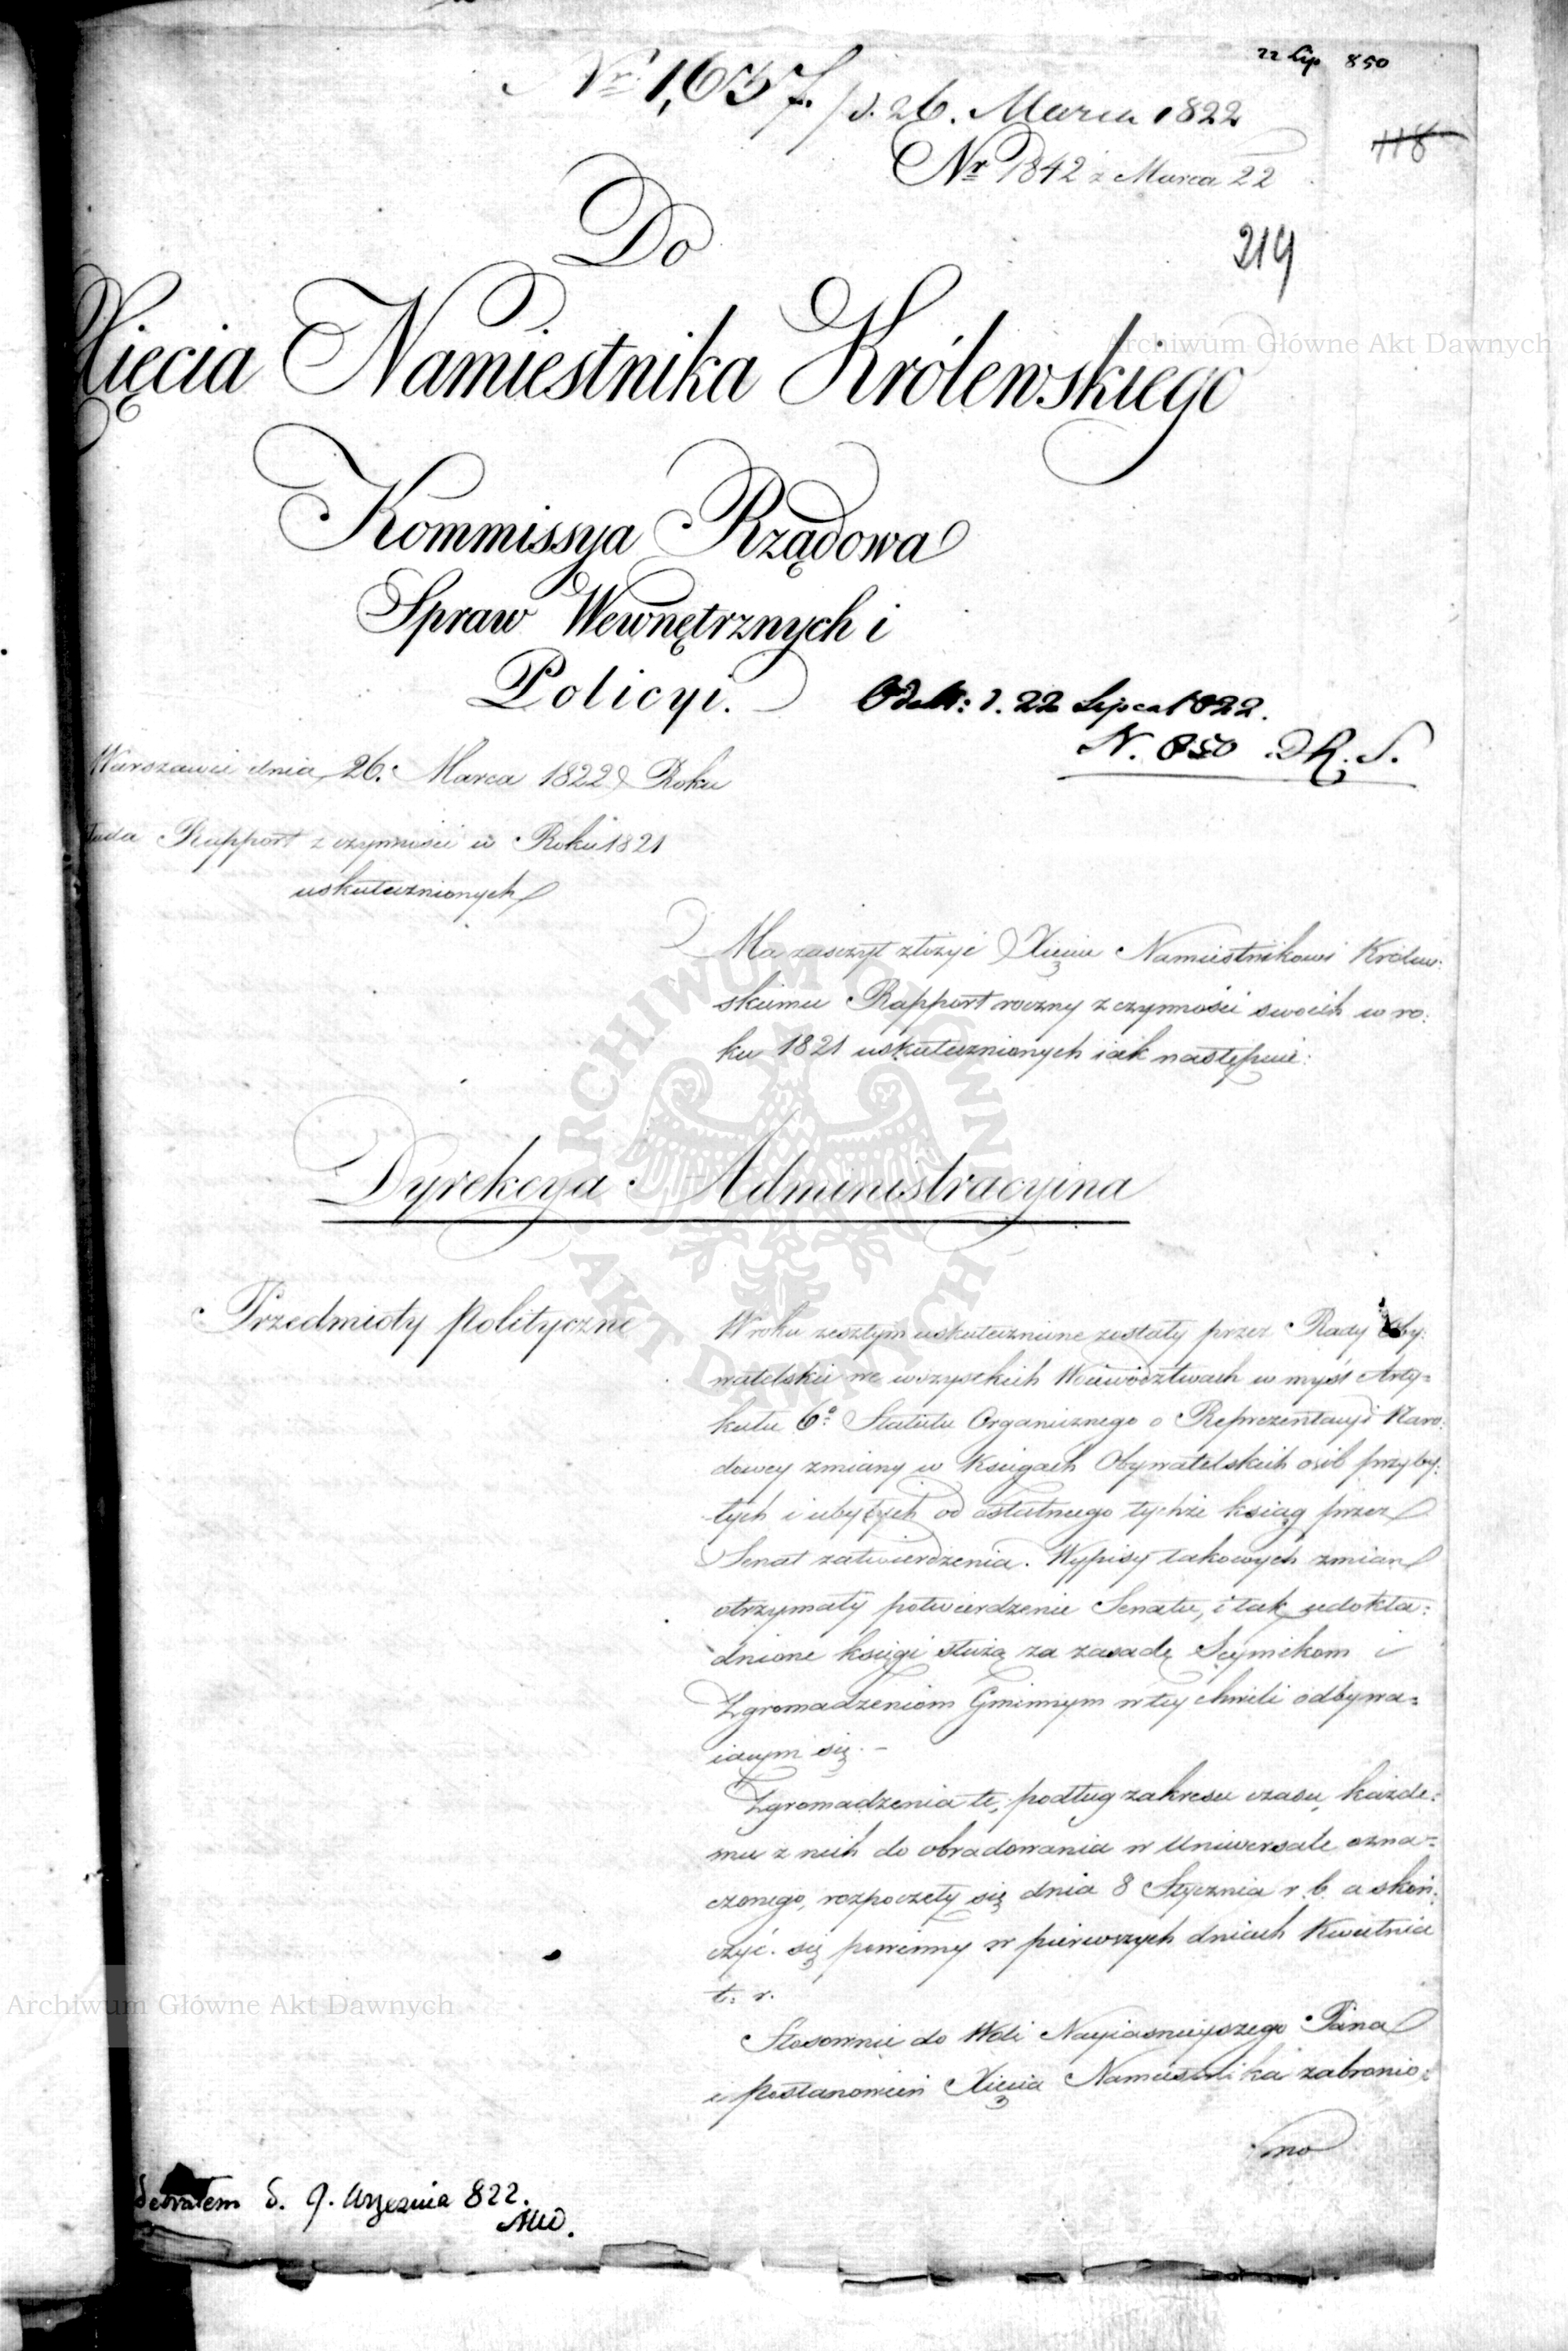 22 Lip 850
Nr 1,637. / d. 26. Marca 1822
Nr 1842 z Marca 22
118
219
Do
Xięcia Namiestnika Królewskiego
Kommissya Rządowa
Spraw Wewnętrznych i
Policyi.
d. 22 Lipca 1822.
N. 850 D. R. S.
Warszawie dnia 26. Marca 1822 Roku
Rapport z czynności w Roku 1821
uskutecznionych
Ma zaszczyt złożyć Xięciu Namiestnikowi Królew:
skiemu Rapport roczny z czynności swoich w ro:
ku 1821 uskutecznionych iak następuie:
Dyrekcya Administracyina
Przedmioty polityczne
W roku zeszłym uskutecznione zostały przez Rady Oby:
watelskie we wszystkich Woiewództwach w myśl Arty=
kułu 6º Statutu Organicznego o Reprezentacyi Naro:
dowey zmiany w Księgach Obywatelskich osób przyby:
łych i ubyłych od ostatniego tychże ksiąg przez
Senat zatwierdzenia. Wypisy takowych zmian
otrzymały potwierdzenie Senatu, i tak udokła:
dnione księgi służą za zasadę Seymikom i
Zgromadzeniom Gminnym w tey chwili odbywa=
iącym się. -
Zgromadzenia te, podług zakresu czasu, każde:
mu z nich do obradowania w Uniwersale ozna=
czonego, rozpoczęły się dnia 8 Stycznia r. b. a skoń:
czyć się powinny w pierwszych dniach Kwietnia
t. r.
Stosownie do Woli Nayiaśnieyszego Pana
i postanowień Xięcia Namiestnika zabronio:
no
Odebrałem d. 9. Września 822.
Archiwum Główne Akt Dawnych
Archiwum Główne Akt Dawnych
ARCHIWUM GŁÓWNE AKT DAWNYCH